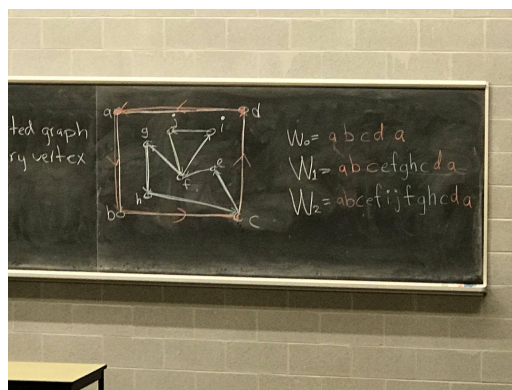 ted graph
ry vertex
a
d
j
i
g
e
f
h
b
c
W₀= abcda
W₁= abcefghcda
W₂= abcefijfghcda